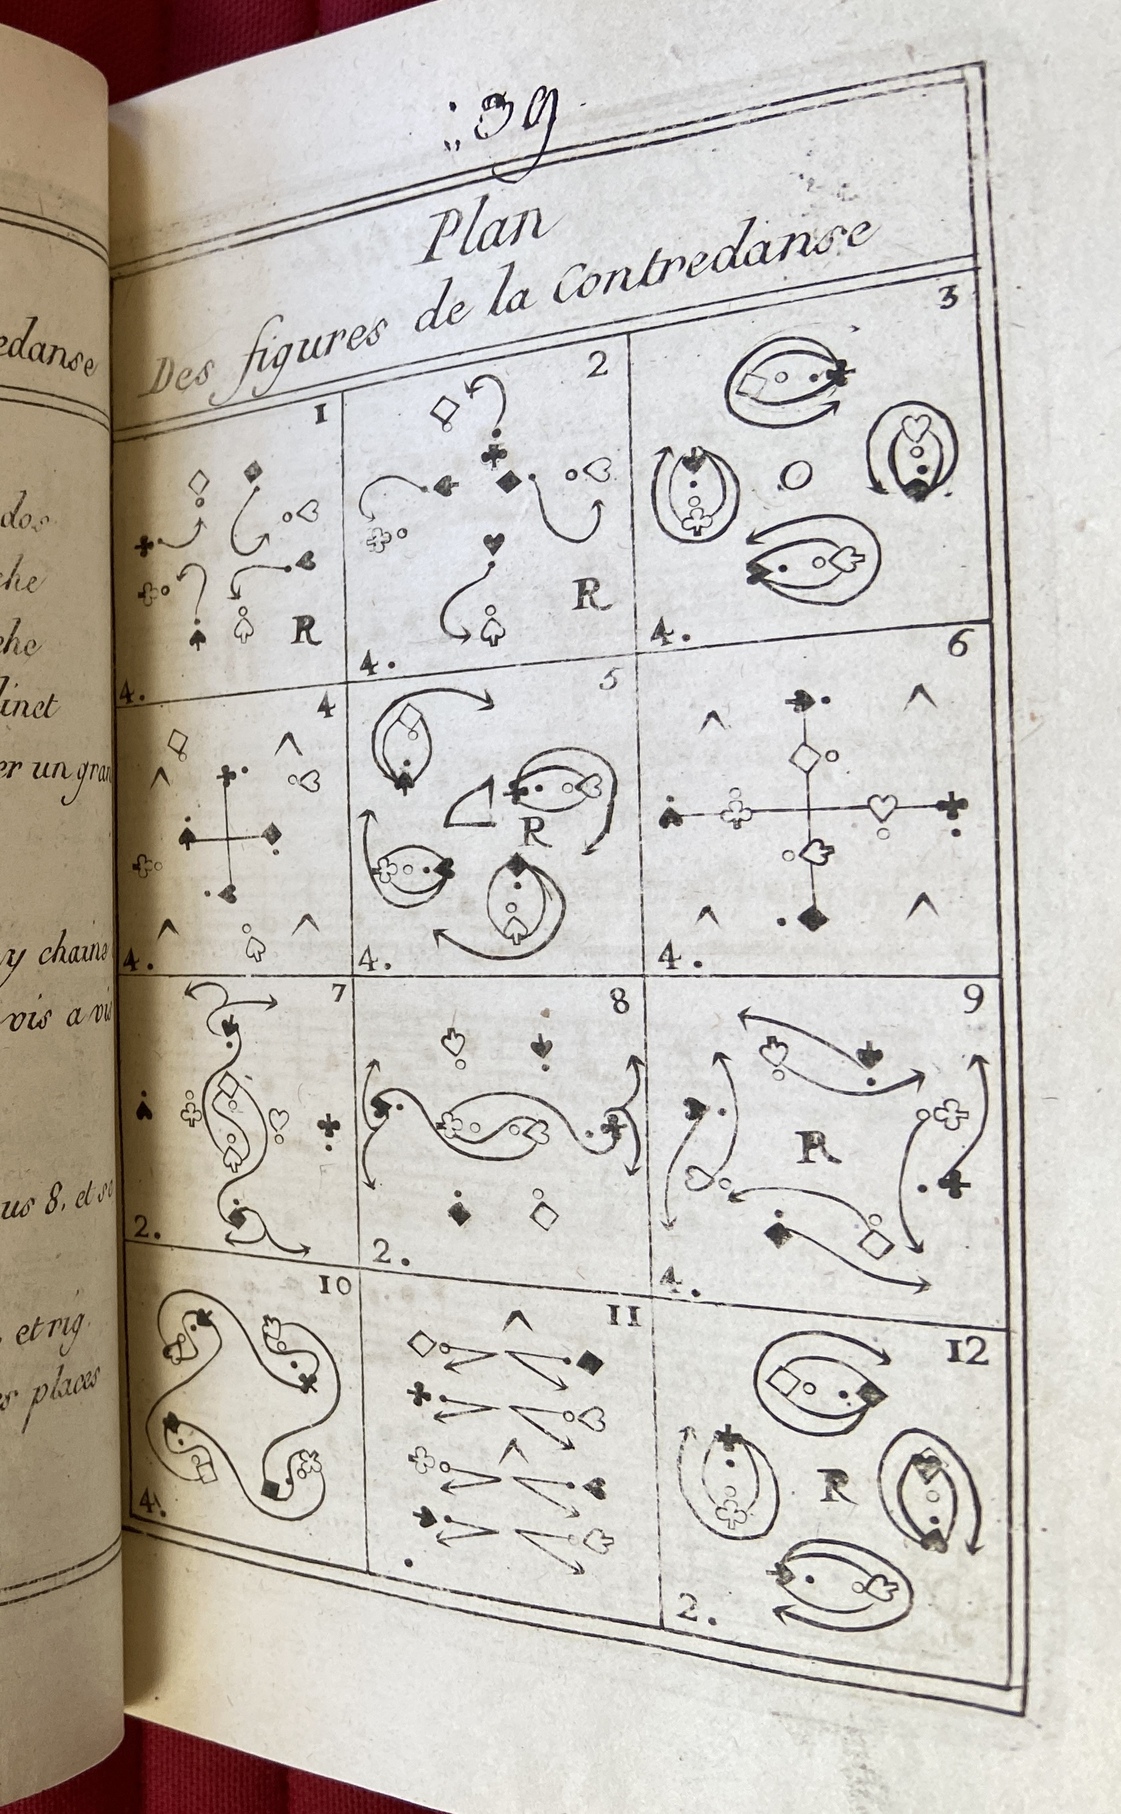 edanse
che
che
linet
er un gran
y chaine
vis a vis
us 8. et se
. et rig.
es places
39
Plan
Des figures de la Contredanse
1
R
4.
2
R
4.
3
4.
4
4.
5
R
4.
6
4.
7
2.
8
2.
9
R
4.
10
4.
11
12
R
2.